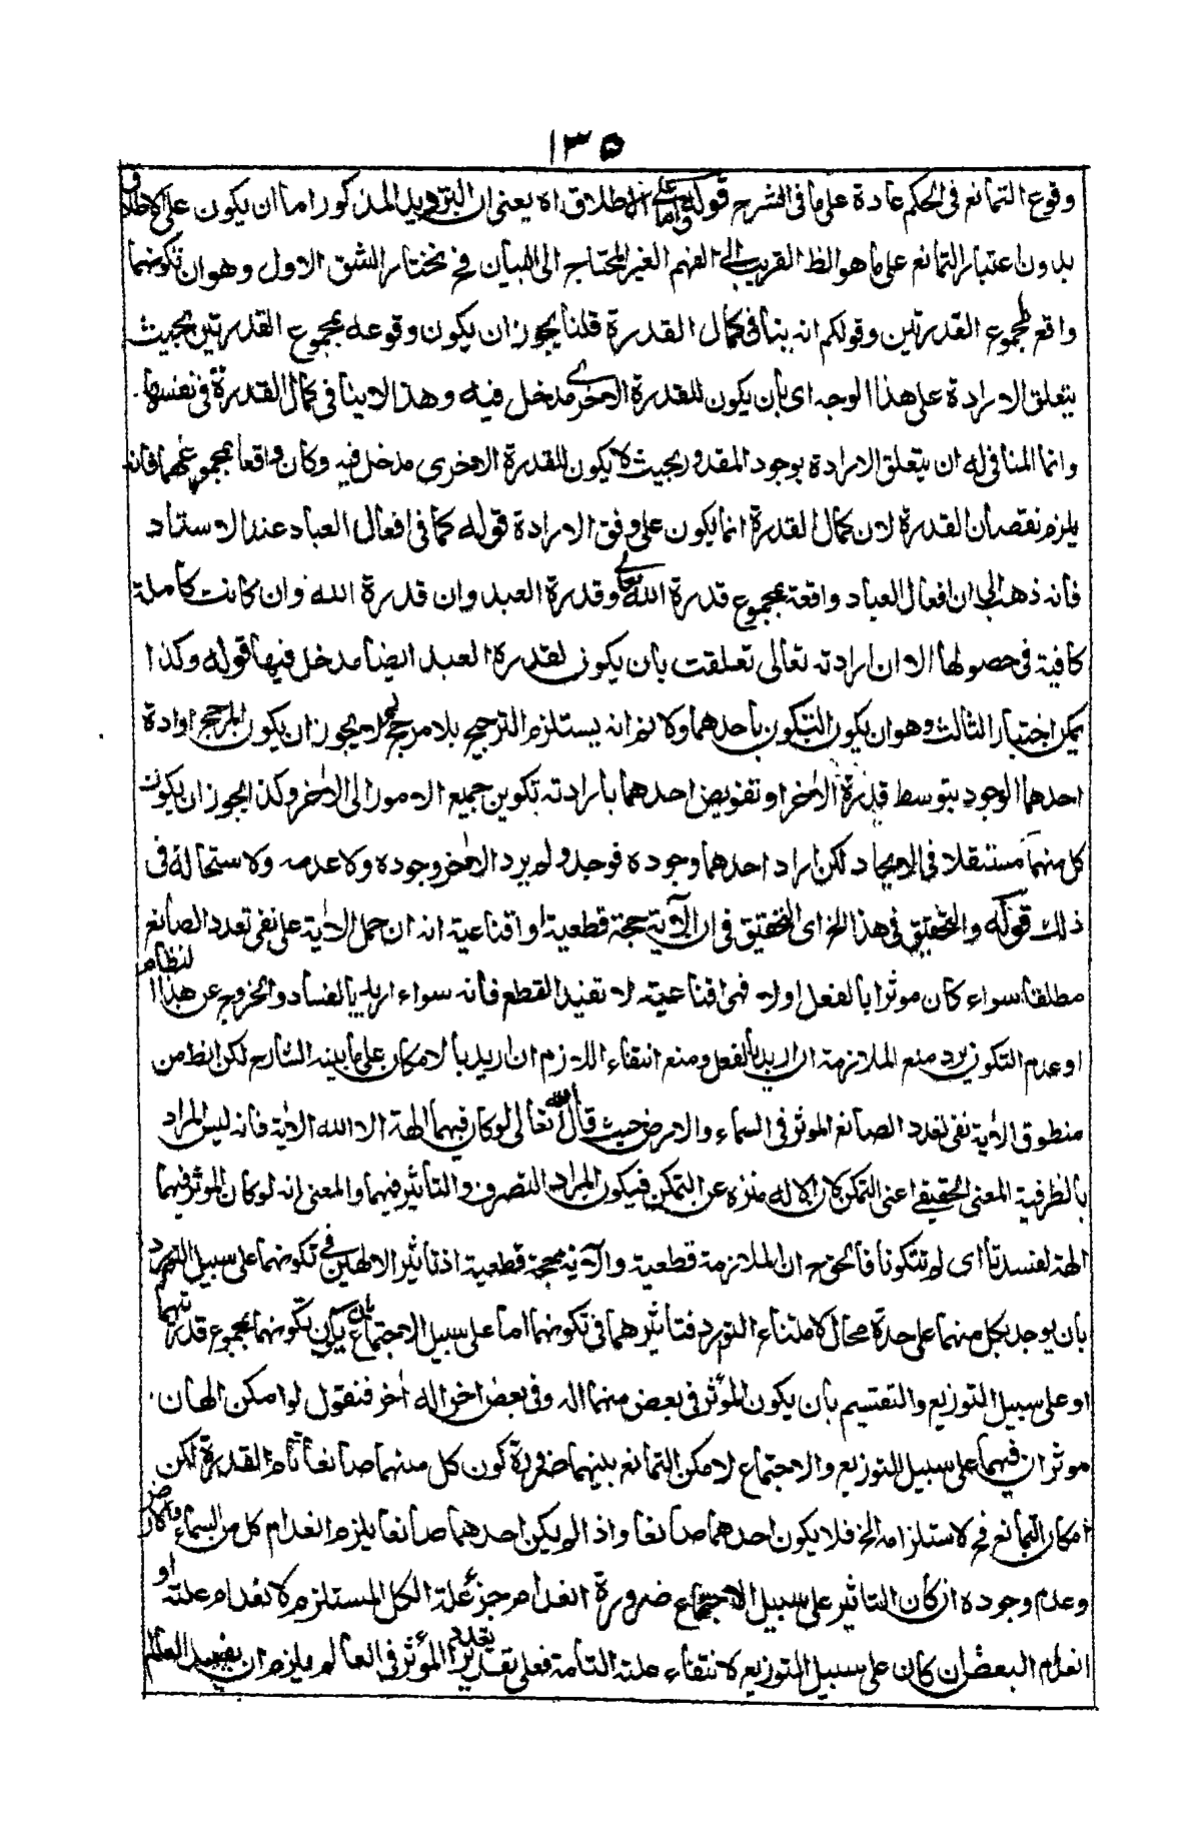 ١٣٥
وقوع التمانع فى الحكم عادة على ما فى الشرح قوله واما على الاطلاق اه يعنى ان الترديد المذكور اما ان يكون على الاطلاق
بدون اعتبار التمانع على ما هو الظ القريب الى الفهم الغير المحتاج الى البيان فح نختار الشق الاول وهو ان تكونهما
واقع لمجموع القدرتين وقولكم انه ينافى كمال القدرة قلنا يجوز ان يكون وقوعه بمجموع القدرتين بحيث
يتعلق الارادة على هذا الوجه اى بان يكون للقدرة الاخرى مدخل فيه وهذا لا ينافى كمال القدرة فى نفسها
وانما المنافى له ان يتعلق الارادة بوجود المقدور بحيث لا يكون للقدرة الاخرى مدخل فيه وكان واقعا بمجموعهما فانه
يلزم نقصان القدرة لان كمال القدرة انما يكون على وفق الارادة قوله كما فى افعال العباد عند الاستاد
فانه ذهب الى ان افعال العباد واقعة بمجموع قدرة الله تعالى وقدرة العبد وان قدرة الله وان كانت كاملة
كافية فى حصولها الا ان ارادته تعالى تعلقت بان يكون لقدرة العبد ايضا مدخل فيها قوله وكذا
يمكن اختيار الثالث وهو ان يكون التكون باحدهما ولا نم انه يستلزم الترجيح بلا مرجح لم لا يجوز ان يكون المرجح ارادة
احدهما الوجود بتوسط قدرة الاخر او تفويض احدهما بارادته تكوين جميع الامور الى الاخر وكذا يجوز ان يكون
كل منهما مستقلا فى الايجاد لكن اراد احدهما وجوده فوجد ولم يرد الاخر وجوده ولا عدمه ولا استحالة فى
ذلك قوله والتحقيق فى هذا الخ اى التحقيق فى ان الآية حجة قطعية او اقناعية انه ان حمل الاية على نفى تعدد الصانع
مطلقا سواء كان موثرا بالفعل اولا فهى اقناعية لا تفيد القطع فانه سواء اريد بالفساد والخروج عن هذا النظام
او عدم التكون يرد منع الملازمة ان اريد بالفعل ومنع انتفاء اللازم ان اريد بالامكان على ما بينه الشارح لكن الظ من
منطوق الاية نفى تعدد الصانع الموثر فى السماء والارض حيث قال الله تعالى لو كان فيهما الهة الا الله الاية فانه ليس المراد
بالظرفية المعنى الحقيقى اعنى التمكن لان الاله منزه عن التمكن فيكون المراد التصرف والتأثير فيهما والمعنى انه لو كان الموثر فيهما
الهة لفسدتا اى لم تتكونا فالحق ح ان الملازمة قطعية والآية حجة قطعية اذ تاثير الالهين فى تكونهما على سبيل التورد
بان يوجد بكل منهما على حدة محال لامتناع التورد فتاثيرهما فى تكونهما اما على سبيل الاجتماع بان يكون تكونهما بمجموع قدرتهما
او على سبيل التوزيع والتقسيم بان يكون المؤثر فى بعض منهما اله وفى بعض اخر اله اخر فنقول لو امكن الهان
موثران فيهما على سبيل التوزيع والاجتماع لامكن التمانع بينهما ضرورة كون كل منهما صانعا تام القدرة لكن
امكان التمانع مح لاستلزامه المح فلا يكون احدهما صانعا واذا لم يكن احدهما صانعا يلزم انعدام كل من السماء والارض
وعدم وجوده ان كان التاثير على سبيل الاجتماع ضرورة انعدام جزء علة الكل المستلزم لانعدام علته او
انعدام البعض ان كان على سبيل التوزيع لانتفاء علته التامة فعلى تقدير تعدد المؤثر فى العالم يلزم ان يفسد العالم